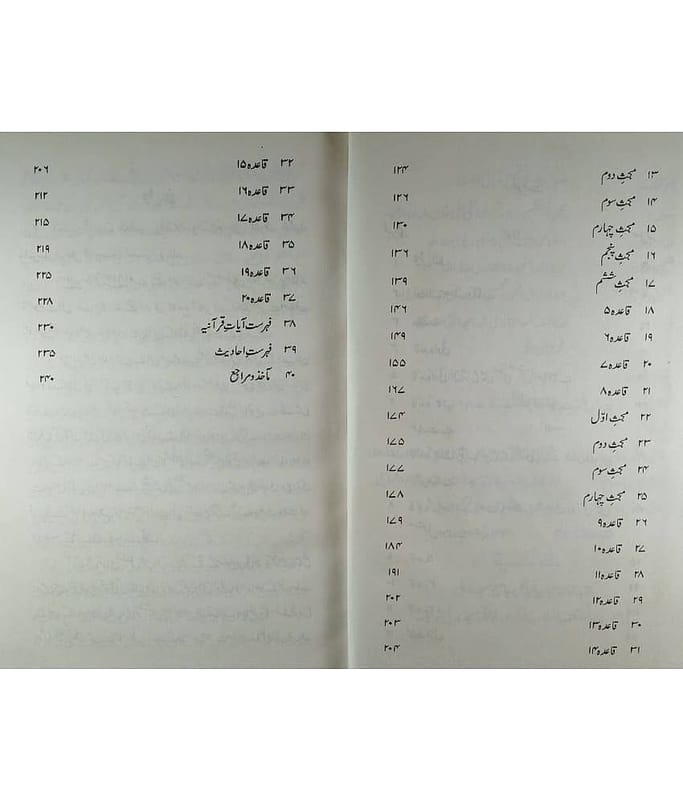 ۱۳ مبحثِ دوم ۱۲۴
۱۴ مبحثِ سوم ۱۲۶
۱۵ مبحثِ چہارم ۱۳۰
۱۶ مبحثِ پنجم ۱۳۶
۱۷ مبحثِ ششم ۱۳۹
۱۸ قاعدہ ۵ ۱۴۶
۱۹ قاعدہ ۶ ۱۴۹
۲۰ قاعدہ ۷ ۱۵۵
۲۱ قاعدہ ۸ ۱۶۷
۲۲ مبحثِ اوّل ۱۷۴
۲۳ مبحثِ دوم ۱۷۵
۲۴ مبحثِ سوم ۱۷۷
۲۵ مبحثِ چہارم ۱۷۸
۲۶ قاعدہ ۹ ۱۷۹
۲۷ قاعدہ ۱۰ ۱۸۴
۲۸ قاعدہ ۱۱ ۱۹۱
۲۹ قاعدہ ۱۲ ۲۰۲
۳۰ قاعدہ ۱۳ ۲۰۳
۳۱ قاعدہ ۱۴ ۲۰۴
۳۲ قاعدہ ۱۵ ۲۰۶
۳۳ قاعدہ ۱۶ ۲۱۲
۳۴ قاعدہ ۱۷ ۲۱۵
۳۵ قاعدہ ۱۸ ۲۱۹
۳۶ قاعدہ ۱۹ ۲۲۵
۳۷ قاعدہ ۲۰ ۲۲۸
۳۸ فہرست آیاتِ قرآنیہ ۲۳۰
۳۹ فہرستِ احادیث ۲۳۵
۴۰ مآخذ و مراجع ۲۴۰